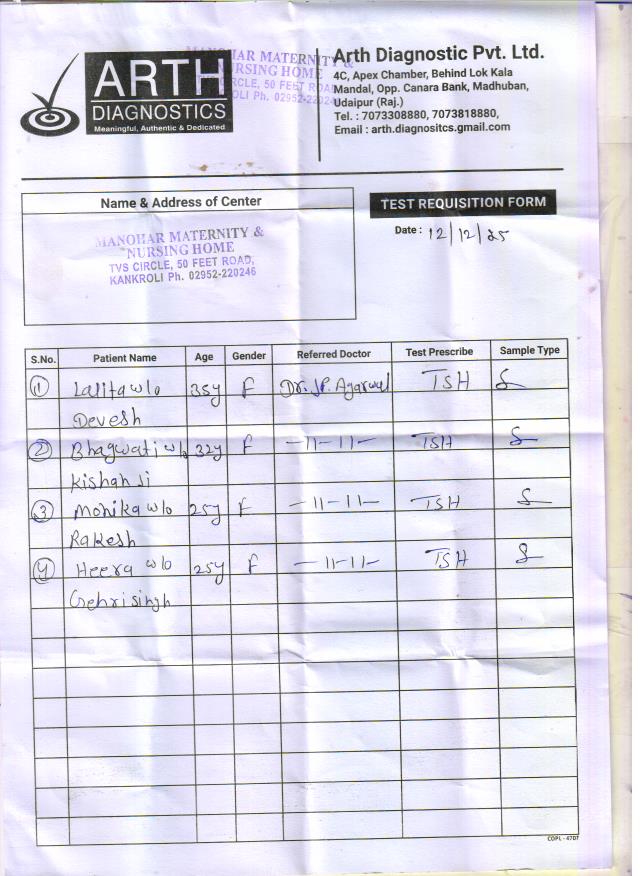 ARTH
DIAGNOSTICS
Meaningful, Authentic & Dedicated
MANOHAR MATERNITY &
NURSING HOME
CIRCLE, 50 FEET ROAD
KANKROLI Ph. 02952-220246
Arth Diagnostic Pvt. Ltd.
4C, Apex Chamber, Behind Lok Kala
Mandal, Opp. Canara Bank, Madhuban,
Udaipur (Raj.)
Tel. : 7073308880, 7073818880,
Email : arth.diagnositcs.gmail.com
Name & Address of Center
MANOHAR MATERNITY &
NURSING HOME
TVS CIRCLE, 50 FEET ROAD,
KANKROLI Ph. 02952-220246
TEST REQUISITION FORM
Date : 12/12/25
S.No. Patient Name Age Gender Referred Doctor Test Prescribe Sample Type
1 Lalita w/o 35y F Dr. J.P. Agarwal TSH S
Devesh
2 Bhagwati w/o 32y F -11-11- TSH S
Kishan Ji
3 Monika w/o 25y F -11-11- TSH S
Rakesh
4 Heera w/o 25y F -11-11- TSH S
Gehrisingh
COPL - 4707